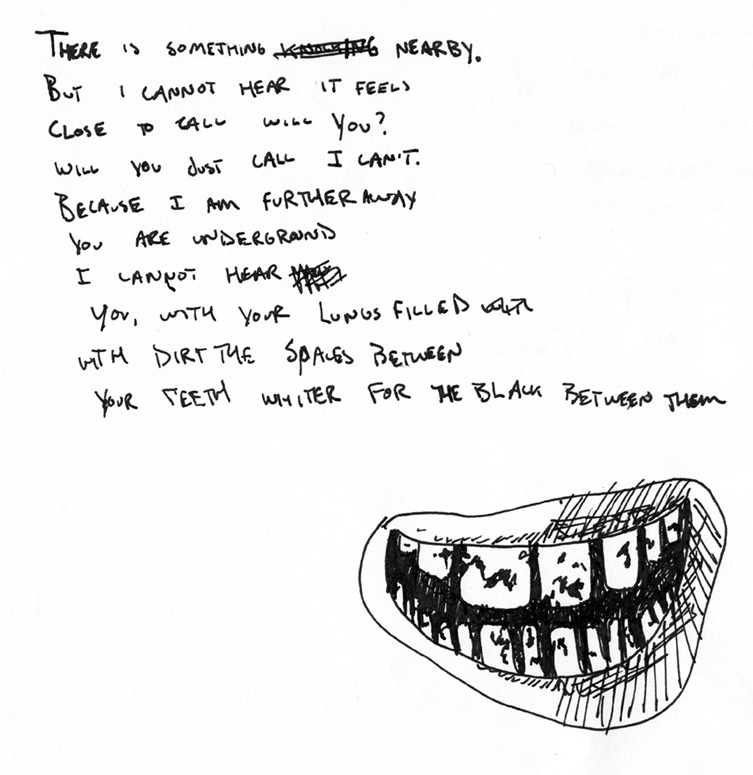 THERE IS SOMETHING NEARBY.
BUT I CANNOT HEAR IT FEELS
CLOSE TO CALL WILL YOU?
WILL YOU JUST CALL I CAN'T.
BECAUSE I AM FURTHER AWAY
YOU ARE UNDERGROUND
I CANNOT HEAR
YOU, WITH YOUR LUNGS FILLED
WITH DIRT THE SPACES BETWEEN
YOUR TEETH WHITER FOR THE BLACK BETWEEN THEM